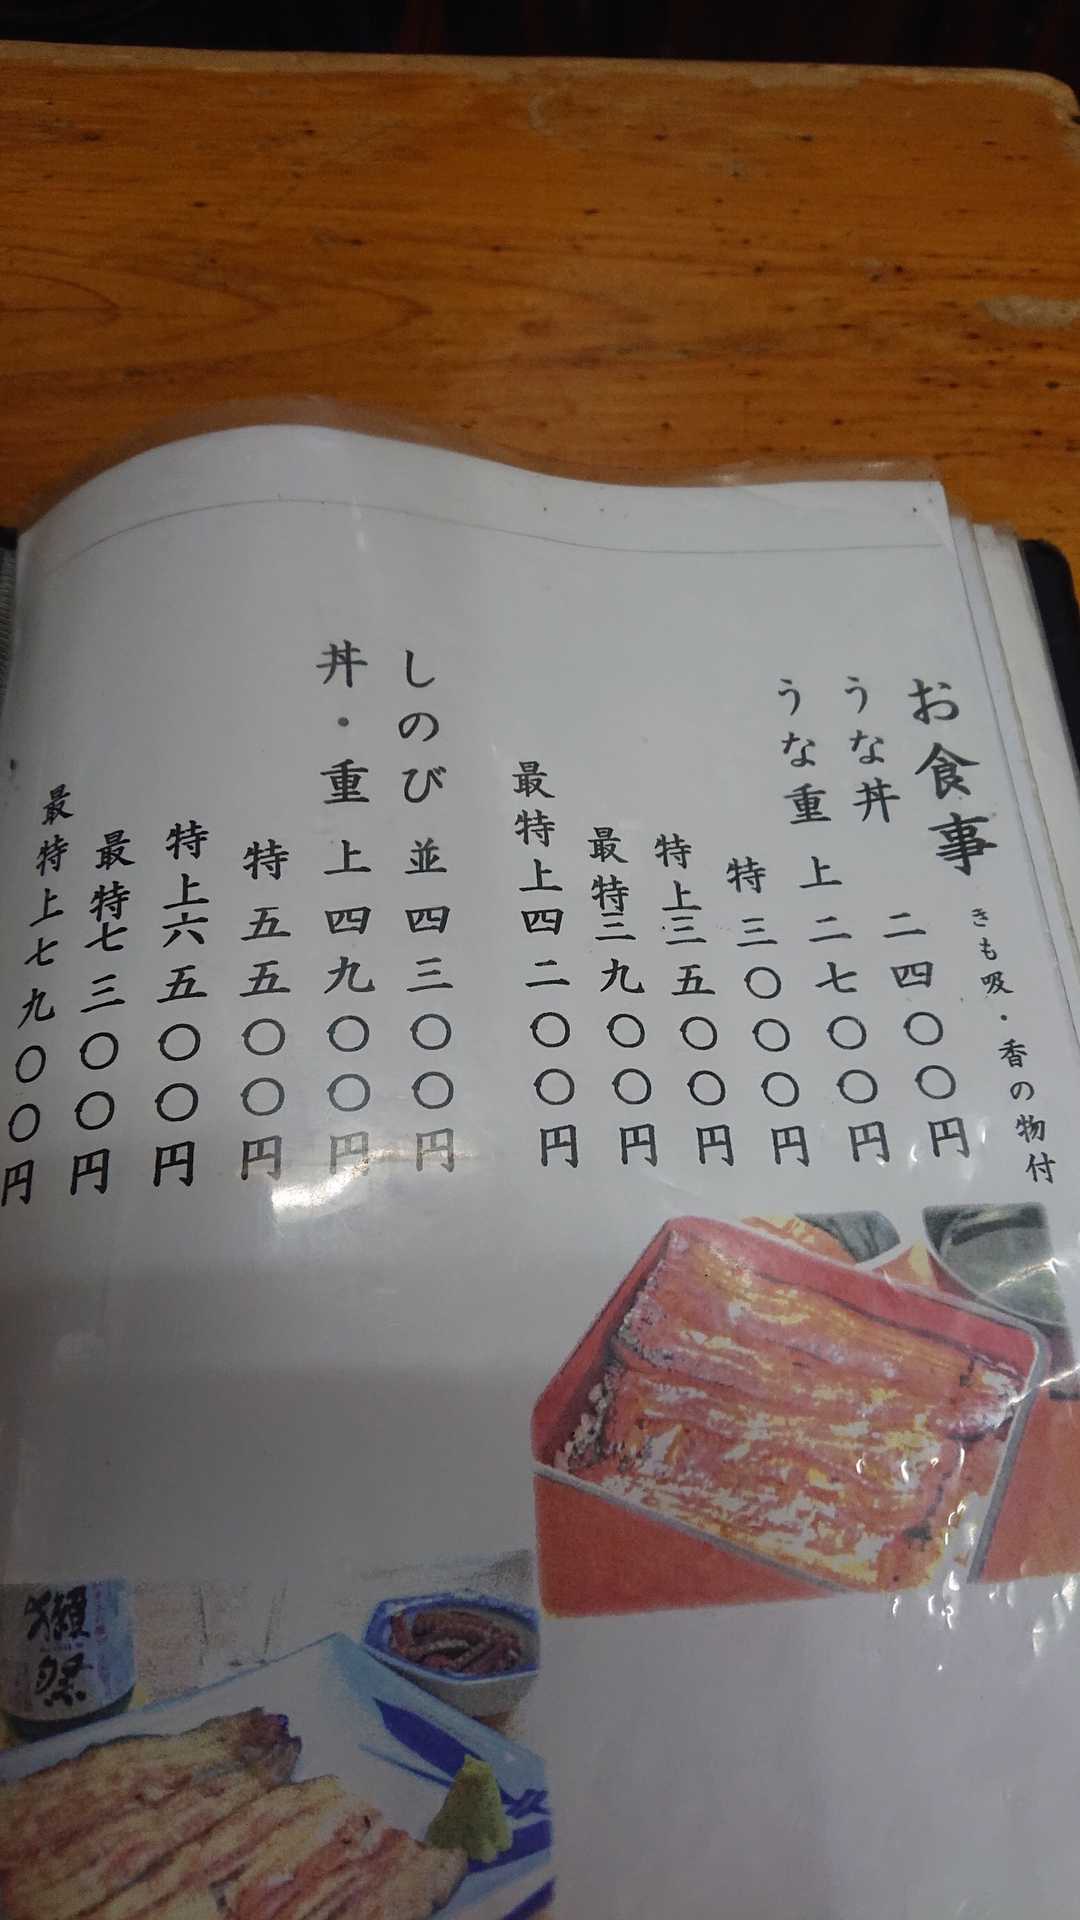 お食事 きも吸・香の物付
うな丼 二四〇〇円
うな重 上 二七〇〇円
特 三〇〇〇円
特上 三五〇〇円
最特 三九〇〇円
最特上 四二〇〇円
しのび 並 四三〇〇円
丼・重 上 四九〇〇円
特 五五〇〇円
特上 六五〇〇円
最特 七三〇〇円
最特上 七九〇〇円
獺祭